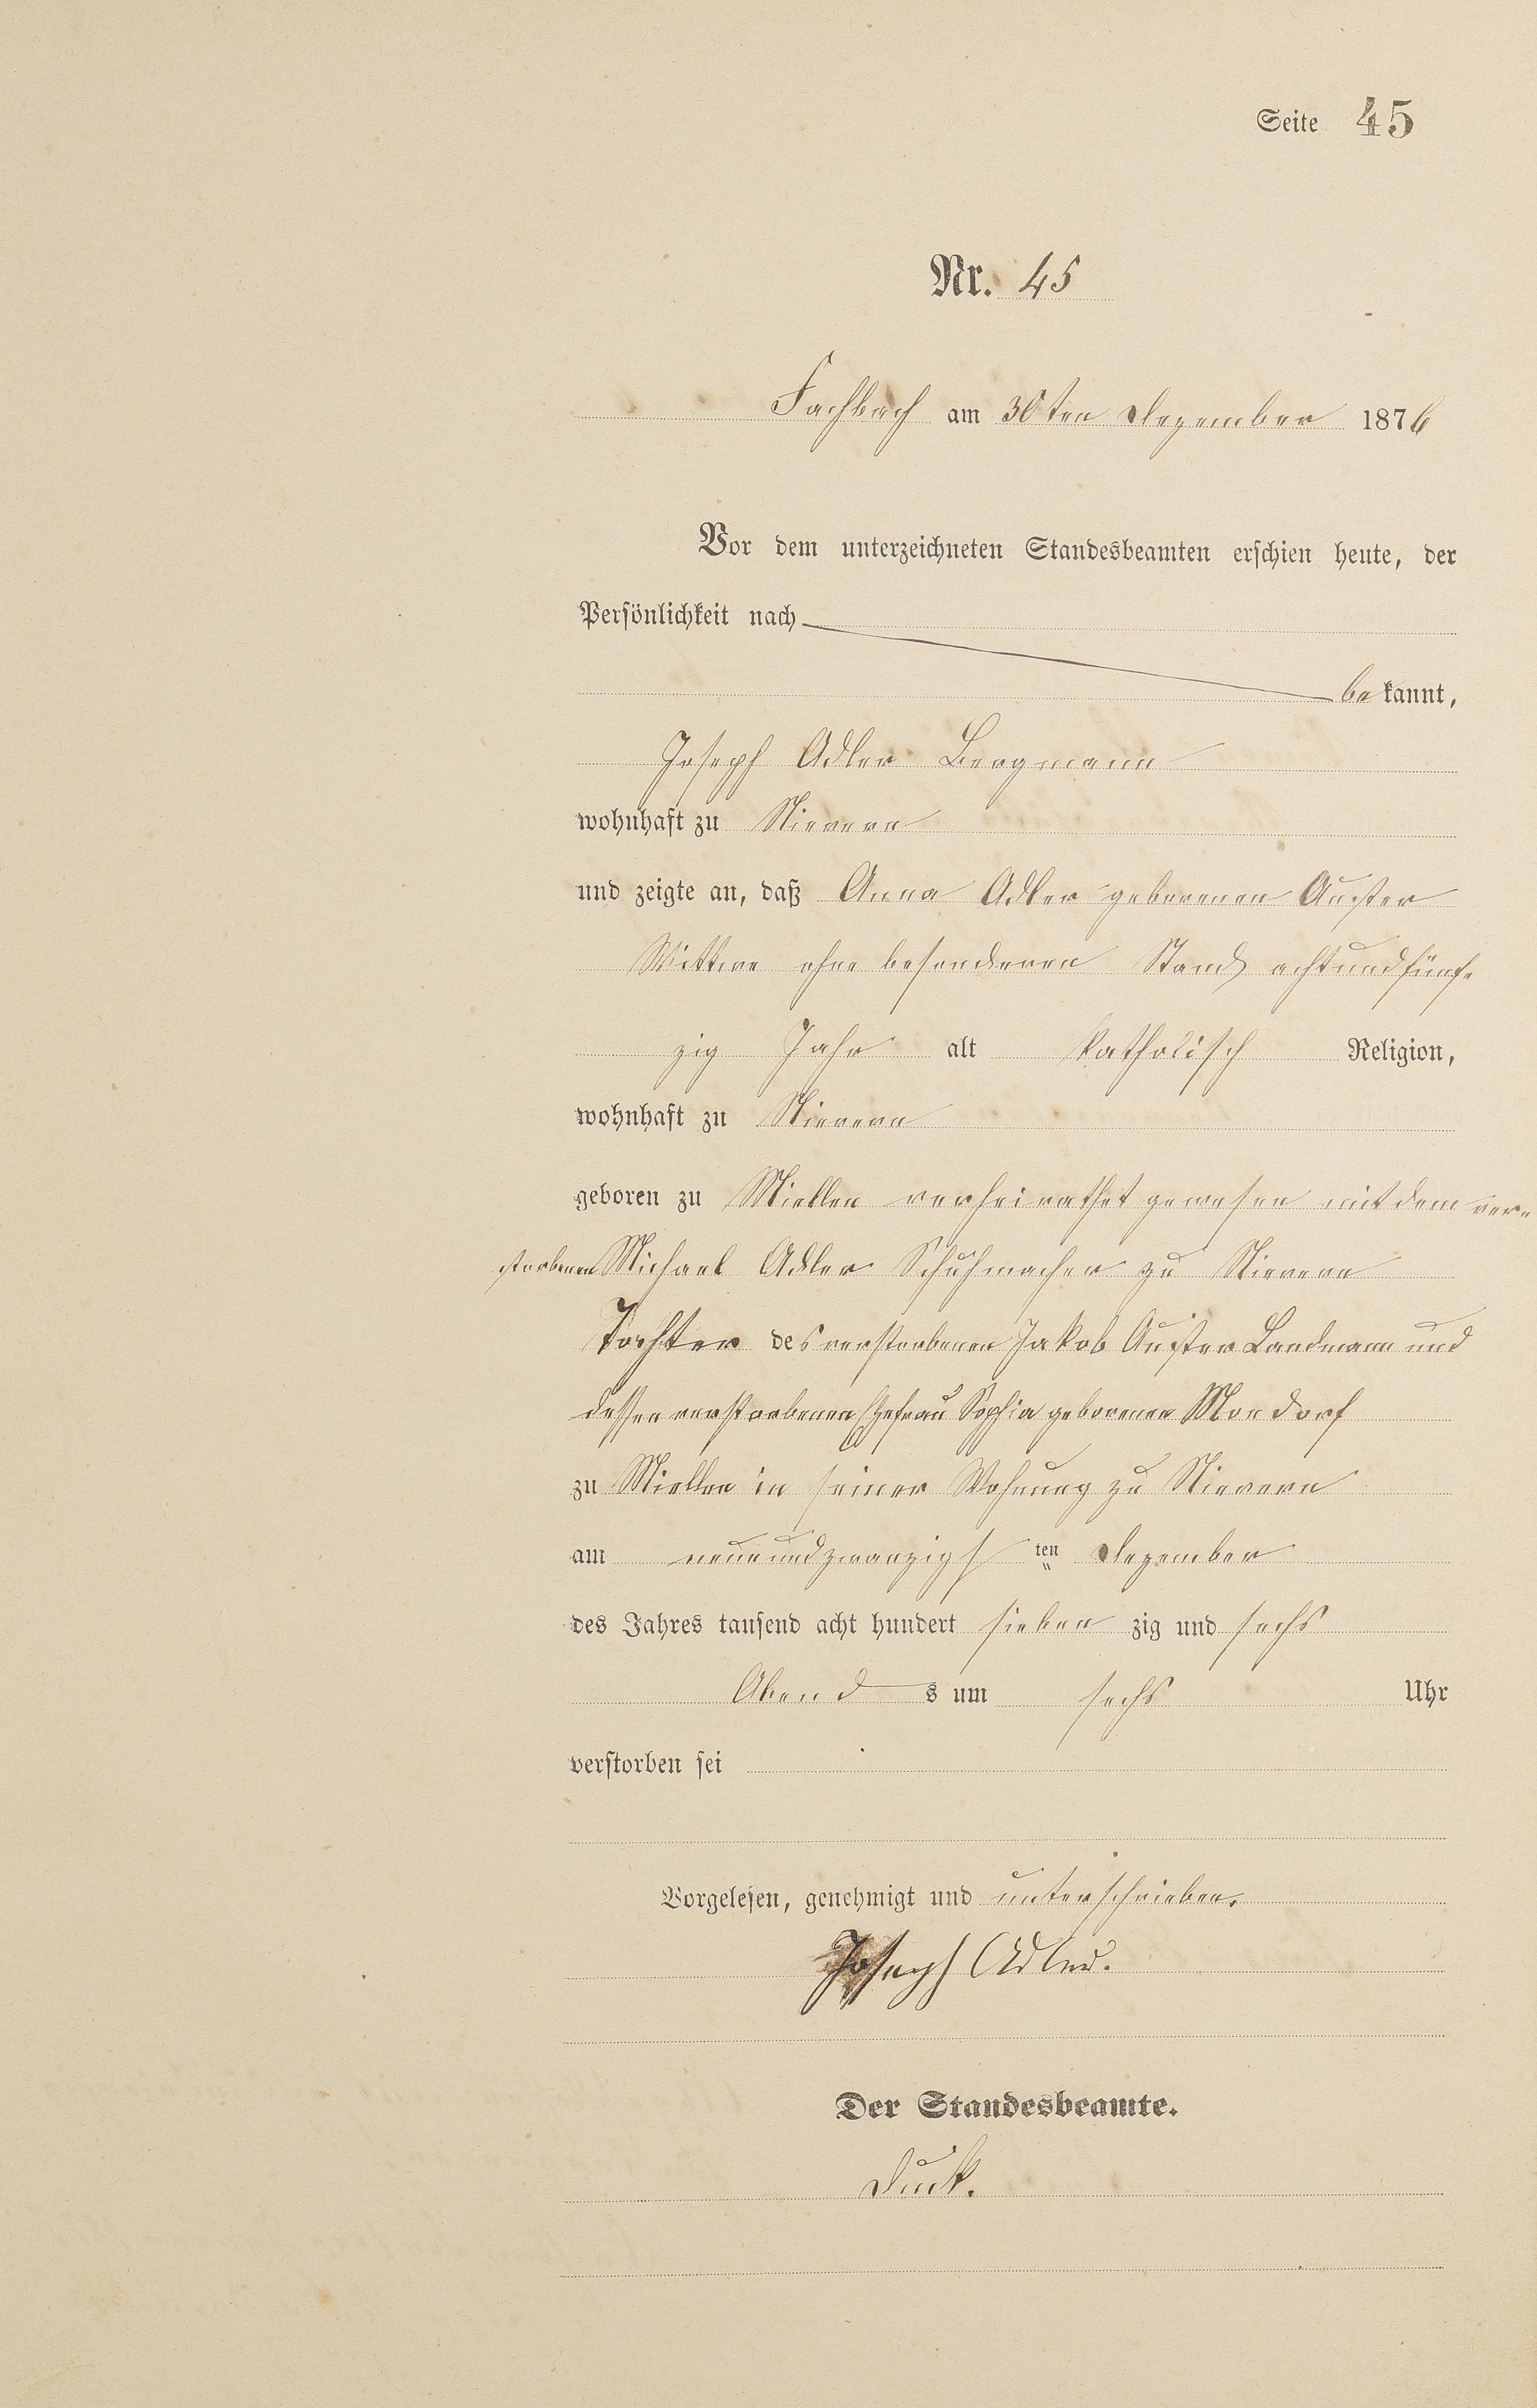 Seite 45
Nr. 45
Fachbach am 30ten Dezember 1876
Vor dem unterzeichneten Standesbeamten erschien heute, der
Persönlichkeit nach
bekannt,
Joseph Adler Bergmann
wohnhaft zu Nievern
und zeigte an, daß Anna Adler geborenen Auster
Wittwe ohne besonderen Stand achtundfünf-
zig Jahr alt katholisch Religion,
wohnhaft zu Nievern
geboren zu Miellen verheirathet gewesen mit dem ver-
storbenen Michael Adler Schuhmacher zu Nievern
Tochter des verstorbenen Jakob Auster Landmann und
dessen verstorbenen Ehefrau Sophia geborenen Mondorf
zu Miellen in seiner Wohnung zu Nievern
am neunundzwanzigsten Dezember
des Jahres tausend acht hundert siebenzig und sechs
Abends um sechs Uhr
verstorben sei
Vorgelesen, genehmigt und unterschrieben.
Joseph Adler.
Der Standesbeamte.